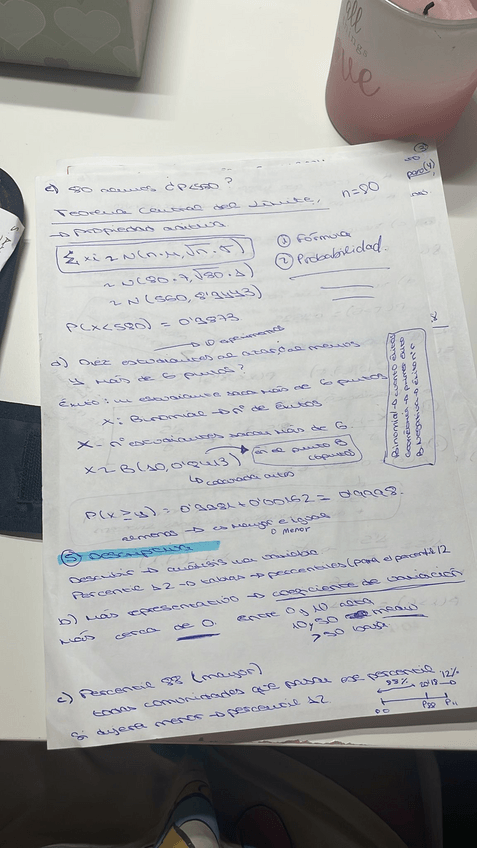 c) 80 alumnos ¿P<580?
n=80
Teorema Central del Límite,
→ Propiedad aditiva
Σ xi ≈ N(n·μ, √n·σ)
① Fórmula
② Probabilidad.
≈ N(80·7, √80·1)
≈ N(560, 8'9443)
P(x<580) = 0'9873
d) Diez estudiantes al azar, al menos
4 más de 6 puntos?
Éxito: un estudiante saca más de 6 puntos
X: Binomial → nº de éxitos
X → nº estudiantes sacan más de 6.
X ≈ B(10, 0'8413) → en el punto B
↳ calculada antes
Binomial → cuento éxitos
Geométrica → primer éxito
B. Negativa → éxito nº r
P(x ≥ 4) = + 0'00162 = 0'9998.
al menos → es mayor e igual
o menor
⑤ Descriptiva
Describir → análisis una variable
Percentil 12 → tablas → percentiles (para el percentil 12
b) Más representativo → coeficiente de variación
Más cerca de 0. entre 0 y 10 alta
10, 30 medio
>30 baja.
c) Percentil 88 (mayor)
tomas comunidades que pasan ese percentil
Si dijera menor → percentil 12
88% 12%
P88